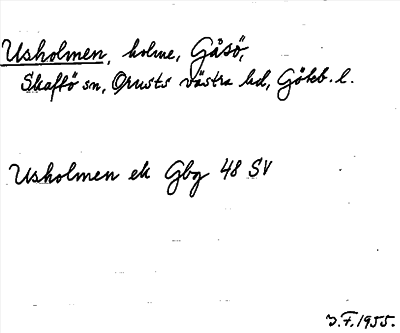 Usholmen, holme, Gåsö,
Skaftö sn, Orusts västra hd, Göteb. l.
Usholmen ek Gbg 48 SV
J.F. 1955.